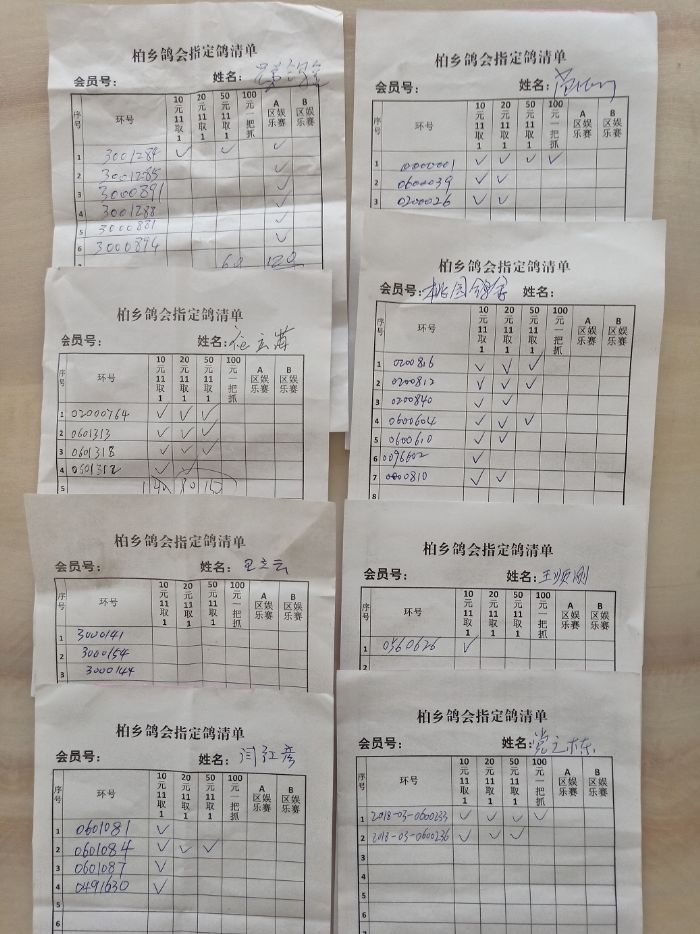 柏乡鸽会指定鸽清单
会员号： 姓名：兄弟鸽舍
序号 环号 10元11取1 20元11取1 50元11取1 100元一把抓 A区娱乐赛 B区娱乐赛
1 3001284 ✓ ✓ ✓
2 3001285 ✓
3 3000891 ✓
4 3001288 ✓
5 3000881 ✓
6 3000894 ✓
60 120
柏乡鸽会指定鸽清单
会员号： 姓名：
序号 环号 10元11取1 20元11取1 50元11取1 100元一把抓 A区娱乐赛 B区娱乐赛
1 02000764 ✓ ✓ ✓
2 0601313 ✓ ✓ ✓
3 0601318 ✓ ✓ ✓
4 0601312 ✓ ✓
5
柏乡鸽会指定鸽清单
会员号： 姓名：王立云
序号 环号 10元11取1 20元11取1 50元11取1 100元一把抓 A区娱乐赛 B区娱乐赛
1 3000141
2 3000154
3 3000144
柏乡鸽会指定鸽清单
会员号： 姓名：闫红彦
序号 环号 10元11取1 20元11取1 50元11取1 100元一把抓 A区娱乐赛 B区娱乐赛
1 0601081 ✓
2 0601084 ✓ ✓ ✓
3 0601087 ✓
4 0491630 ✓
5
6
柏乡鸽会指定鸽清单
会员号： 姓名：
序号 环号 10元11取1 20元11取1 50元11取1 100元一把抓 A区娱乐赛 B区娱乐赛
1 10000001 ✓ ✓ ✓ ✓
2 0600039 ✓ ✓
3 0200026 ✓ ✓
柏乡鸽会指定鸽清单
会员号：桃园鸽舍 姓名：
序号 环号 10元11取1 20元11取1 50元11取1 100元一把抓 A区娱乐赛 B区娱乐赛
1 0200816 ✓ ✓ ✓
2 0200812 ✓ ✓ ✓
3 0200840 ✓ ✓
4 0600604 ✓ ✓ ✓
5 0600610 ✓ ✓
6 0096602 ✓
7 0000810 ✓ ✓
8
柏乡鸽会指定鸽清单
会员号： 姓名：王顺刚
序号 环号 10元11取1 20元11取1 50元11取1 100元一把抓 A区娱乐赛 B区娱乐赛
1 0560626 ✓
2
柏乡鸽会指定鸽清单
会员号： 姓名：党之栋
序号 环号 10元11取1 20元11取1 50元11取1 100元一把抓 A区娱乐赛 B区娱乐赛
1 2018-03-0600233 ✓ ✓ ✓ ✓
2 2018-03-0600236 ✓ ✓ ✓
3
4
5
6
7